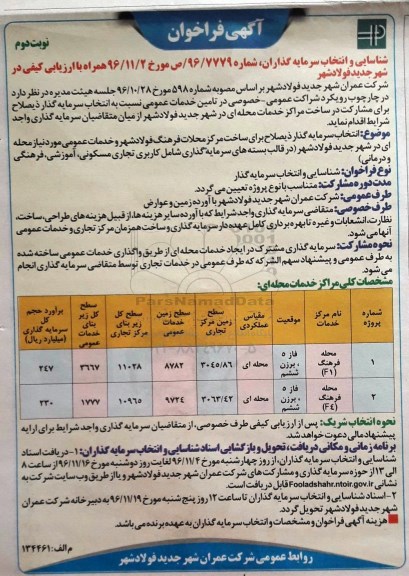 آگهی فراخوان
نوبت دوم
شناسایی و انتخاب سرمایه گذاران، شماره ۹۶/۷۷۷۹/ص مورخ ۹۶/۱۱/۲ همراه با ارزیابی کیفی در
شهر جدید فولادشهر
شرکت عمران شهر جدید فولادشهر بر اساس مصوبه شماره ۵۹۸ مورخ ۹۶/۱۰/۲۸ جلسه هیئت مدیره در نظر دارد
در چارچوب رویکرد شراکت عمومی-خصوصی در تامین خدمات عمومی نسبت به انتخاب سرمایه گذار ذیصلاح
برای مشارکت در ساخت مراکز خدمات محله ای در شهر جدید فولادشهر از میان متقاضیان سرمایه گذاری واجد
شرایط اقدام نماید.
موضوع: انتخاب سرمایه گذار ذیصلاح برای ساخت مرکز محلات فرهنگ فولادشهر و خدمات عمومی مورد نیاز محله
ای در شهر جدید فولادشهر (در قالب بسته های سرمایه گذاری شامل کاربری تجاری مسکونی، آموزشی، فرهنگی
و درمانی)
نوع فراخوان: شناسایی و انتخاب سرمایه گذار
مدت دوره مشارکت: متناسب با نوع پروژه تعیین می گردد.
طرف عمومی: شرکت عمران شهر جدید فولادشهر با آورده زمین و عوارض
طرف خصوصی: متقاضی سرمایه گذاری واجد شرایط که با آورده سایر هزینه ها، از قبیل هزینه های طراحی، ساخت،
نظارت، انشعابات و غیره تا بهره برداری کامل عهده دار سرمایه گذاری و ساخت همزمان مرکز تجاری و خدمات عمومی
آنها می شود.
نحوه مشارکت: سرمایه گذاری مشترک در ایجاد خدمات محله ای از طریق واگذاری خدمات عمومی ساخته شده
به طرف عمومی و پیشنهاد سهم الشرکه که طرف عمومی در خدمات تجاری توسط متقاضی سرمایه گذاری انجام
می شود.
مشخصات کلی مراکز خدمات محله ای:
شماره پروژه | نام مرکز خدمات | موقعیت | مقیاس عملکردی | سطح زمین مرکز تجاری | سطح زمین خدمات عمومی | سطح کل زیر بنای مرکز تجاری | سطح کل زیر بنای خدمات عمومی | برآورد حجم کل سرمایه گذاری (میلیارد ریال)
۱ | محله فرهنگ (F۱) | فاز ۵ ، برزن ششم | محله ای | ۳۰۴۵/۸۶ | ۸۷۸۲ | ۱۱۰۲۸ | ۳۶۶۷ | ۲۴۷
۲ | محله فرهنگ (F۴) | فاز ۵ ، برزن ششم | محله ای | ۳۰۶۳/۴۲ | ۹۷۲۴ | ۱۰۹۶۵ | ۱۷۷۷ | ۳۳۰
نحوه انتخاب شریک: پس از ارزیابی کیفی طرف خصوصی، از متقاضیان سرمایه گذاری واجد شرایط برای ارایه
پیشنهاد مالی دعوت خواهد شد.
برنامه زمانی و مکانی دریافت، تحویل و بازگشایی اسناد شناسایی و انتخاب سرمایه گذاران: ۱-دریافت اسناد
شناسایی و انتخاب سرمایه گذاران، از روز چهارشنبه مورخ ۹۶/۱۱/۴ لغایت روز دوشنبه مورخ ۹۶/۱۱/۱۶ از ساعت ۸
الی ۱۳ از حوزه سرمایه گذاری و مشارکت های شرکت عمران شهر جدید فولادشهر و یا از طریق وب سایت شرکت به
نشانی Fooladshahr.ntoir.gov.ir قابل دریافت است.
۲-اسناد شناسایی و انتخاب سرمایه گذاران تا ساعت ۱۲ روز پنج شنبه مورخ ۹۶/۱۱/۱۹ به دبیرخانه شرکت عمران
شهر جدید فولادشهر تحویل گردد.
هزینه آگهی فراخوان و مشخصات و انتخاب سرمایه گذاران به عهده برنده می باشد.
م الف: ۱۳۴۴۶۱
روابط عمومی شرکت عمران شهر جدید فولادشهر
ParsNamadData